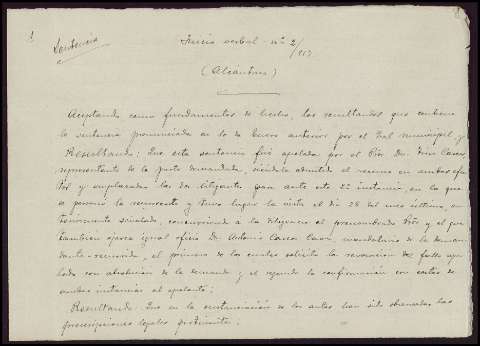 Sentencia
Juicio verbal - nº 2/
(Alcántara)
Aceptando como fundamentos de hecho, los resultandos que contiene
la sentencia pronunciada en 10 de Enero anterior por el Tral municipal, y
Resultando: Que esta sentencia fué apelada por el Pror Dn.
representante de la parte demandada, siéndole admitido el recurso en ambos efec
tos y emplazados los dos litigantes para ante esta 2ª instancia, en la que
se personó la recurrente y tuvo lugar la vista el dia 28 del mes último, an
teriormente señalado, concurriendo a la diligencia el prenombrado y el que
tambien ejerce igual oficio Dn. Antonio mandatario de la deman
dante-recurrida, el primero de los cuales solicitó la revocacion del fallo ape
lado con absolucion de la demanda y el segundo la confirmación con costas de
ambas instancias al apelante;
Resultando: Que en la sustanciación de los autos han sido observadas las
prescripciones legales pertinentes;